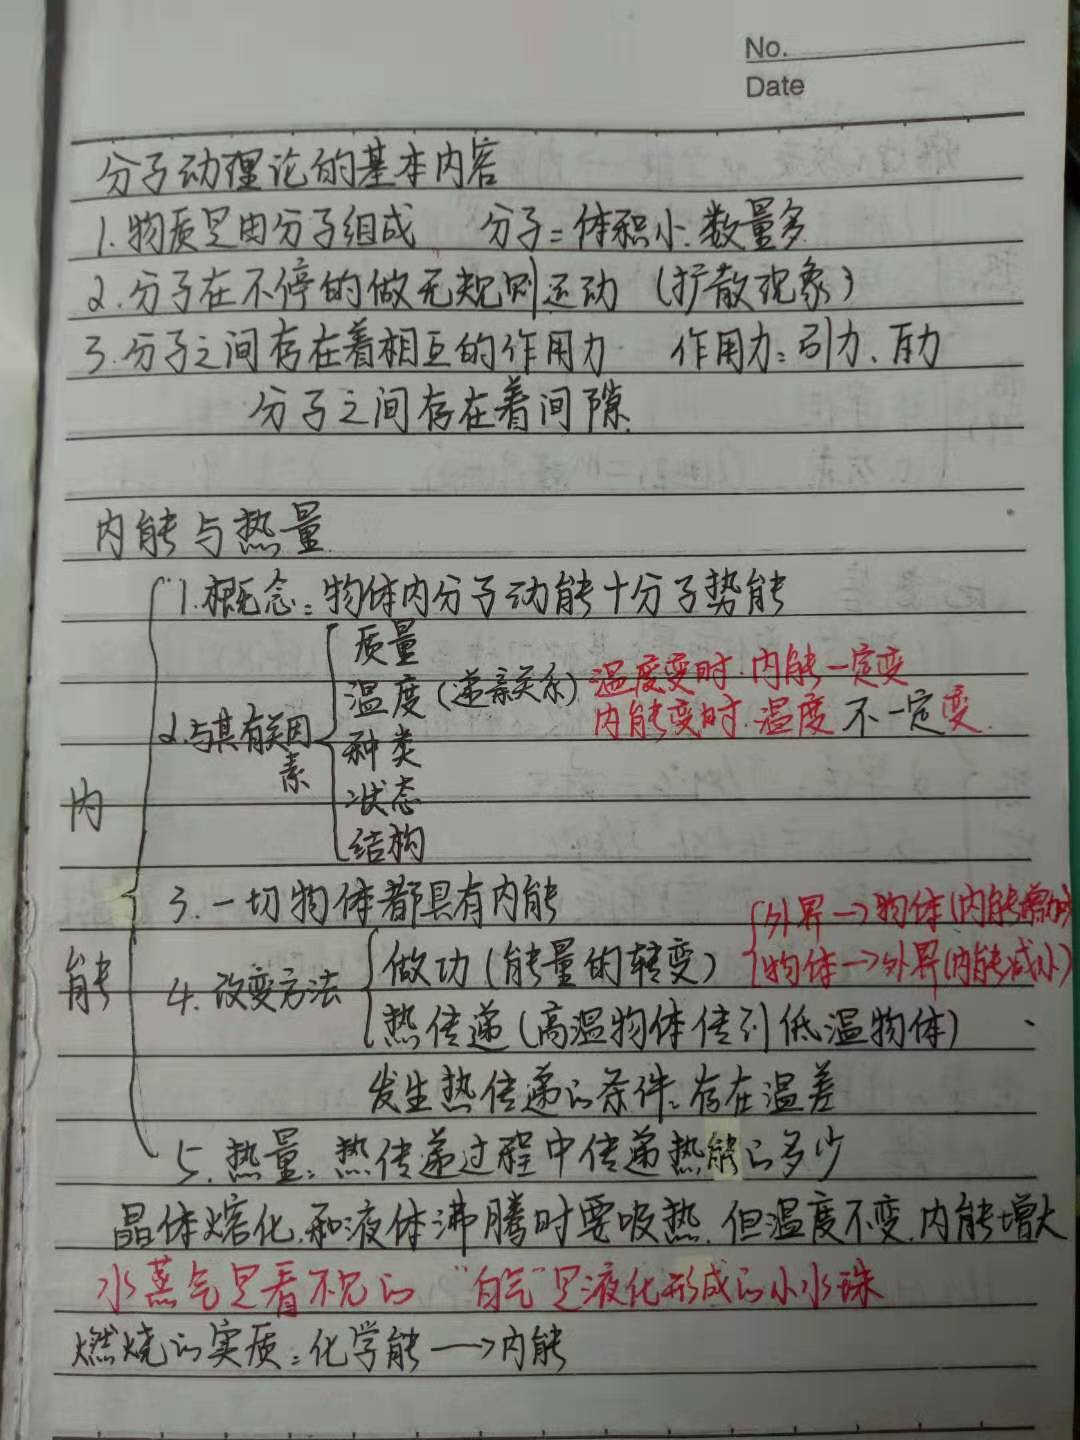 No.
Date
分子动理论的基本内容
1.物质是由分子组成 分子:体积小.数量多
2.分子在不停的做无规则运动 (扩散现象)
3.分子之间存在着相互的作用力 作用力:引力、斥力
分子之间存在着间隙.
内能与热量
内能
1.概念:物体内分子动能+分子势能
2.与其有关因素
质量
温度(递亲关系) 温度变时.内能一定变
内能变时.温度不一定变.
种类
状态
结构
3.一切物体都具有内能
4.改变方法
做功(能量的转变)
外界→物体(内能增加)
物体→外界(内能减小)
热传递(高温物体传到低温物体)
发生热传递的条件:存在温差
5.热量:热传递过程中传递热能的多少
晶体熔化.和液体沸腾时要吸热.但温度不变.内能增大
水蒸气是看不见的 "白气"是液化形成的小水珠
燃烧的实质:化学能→内能